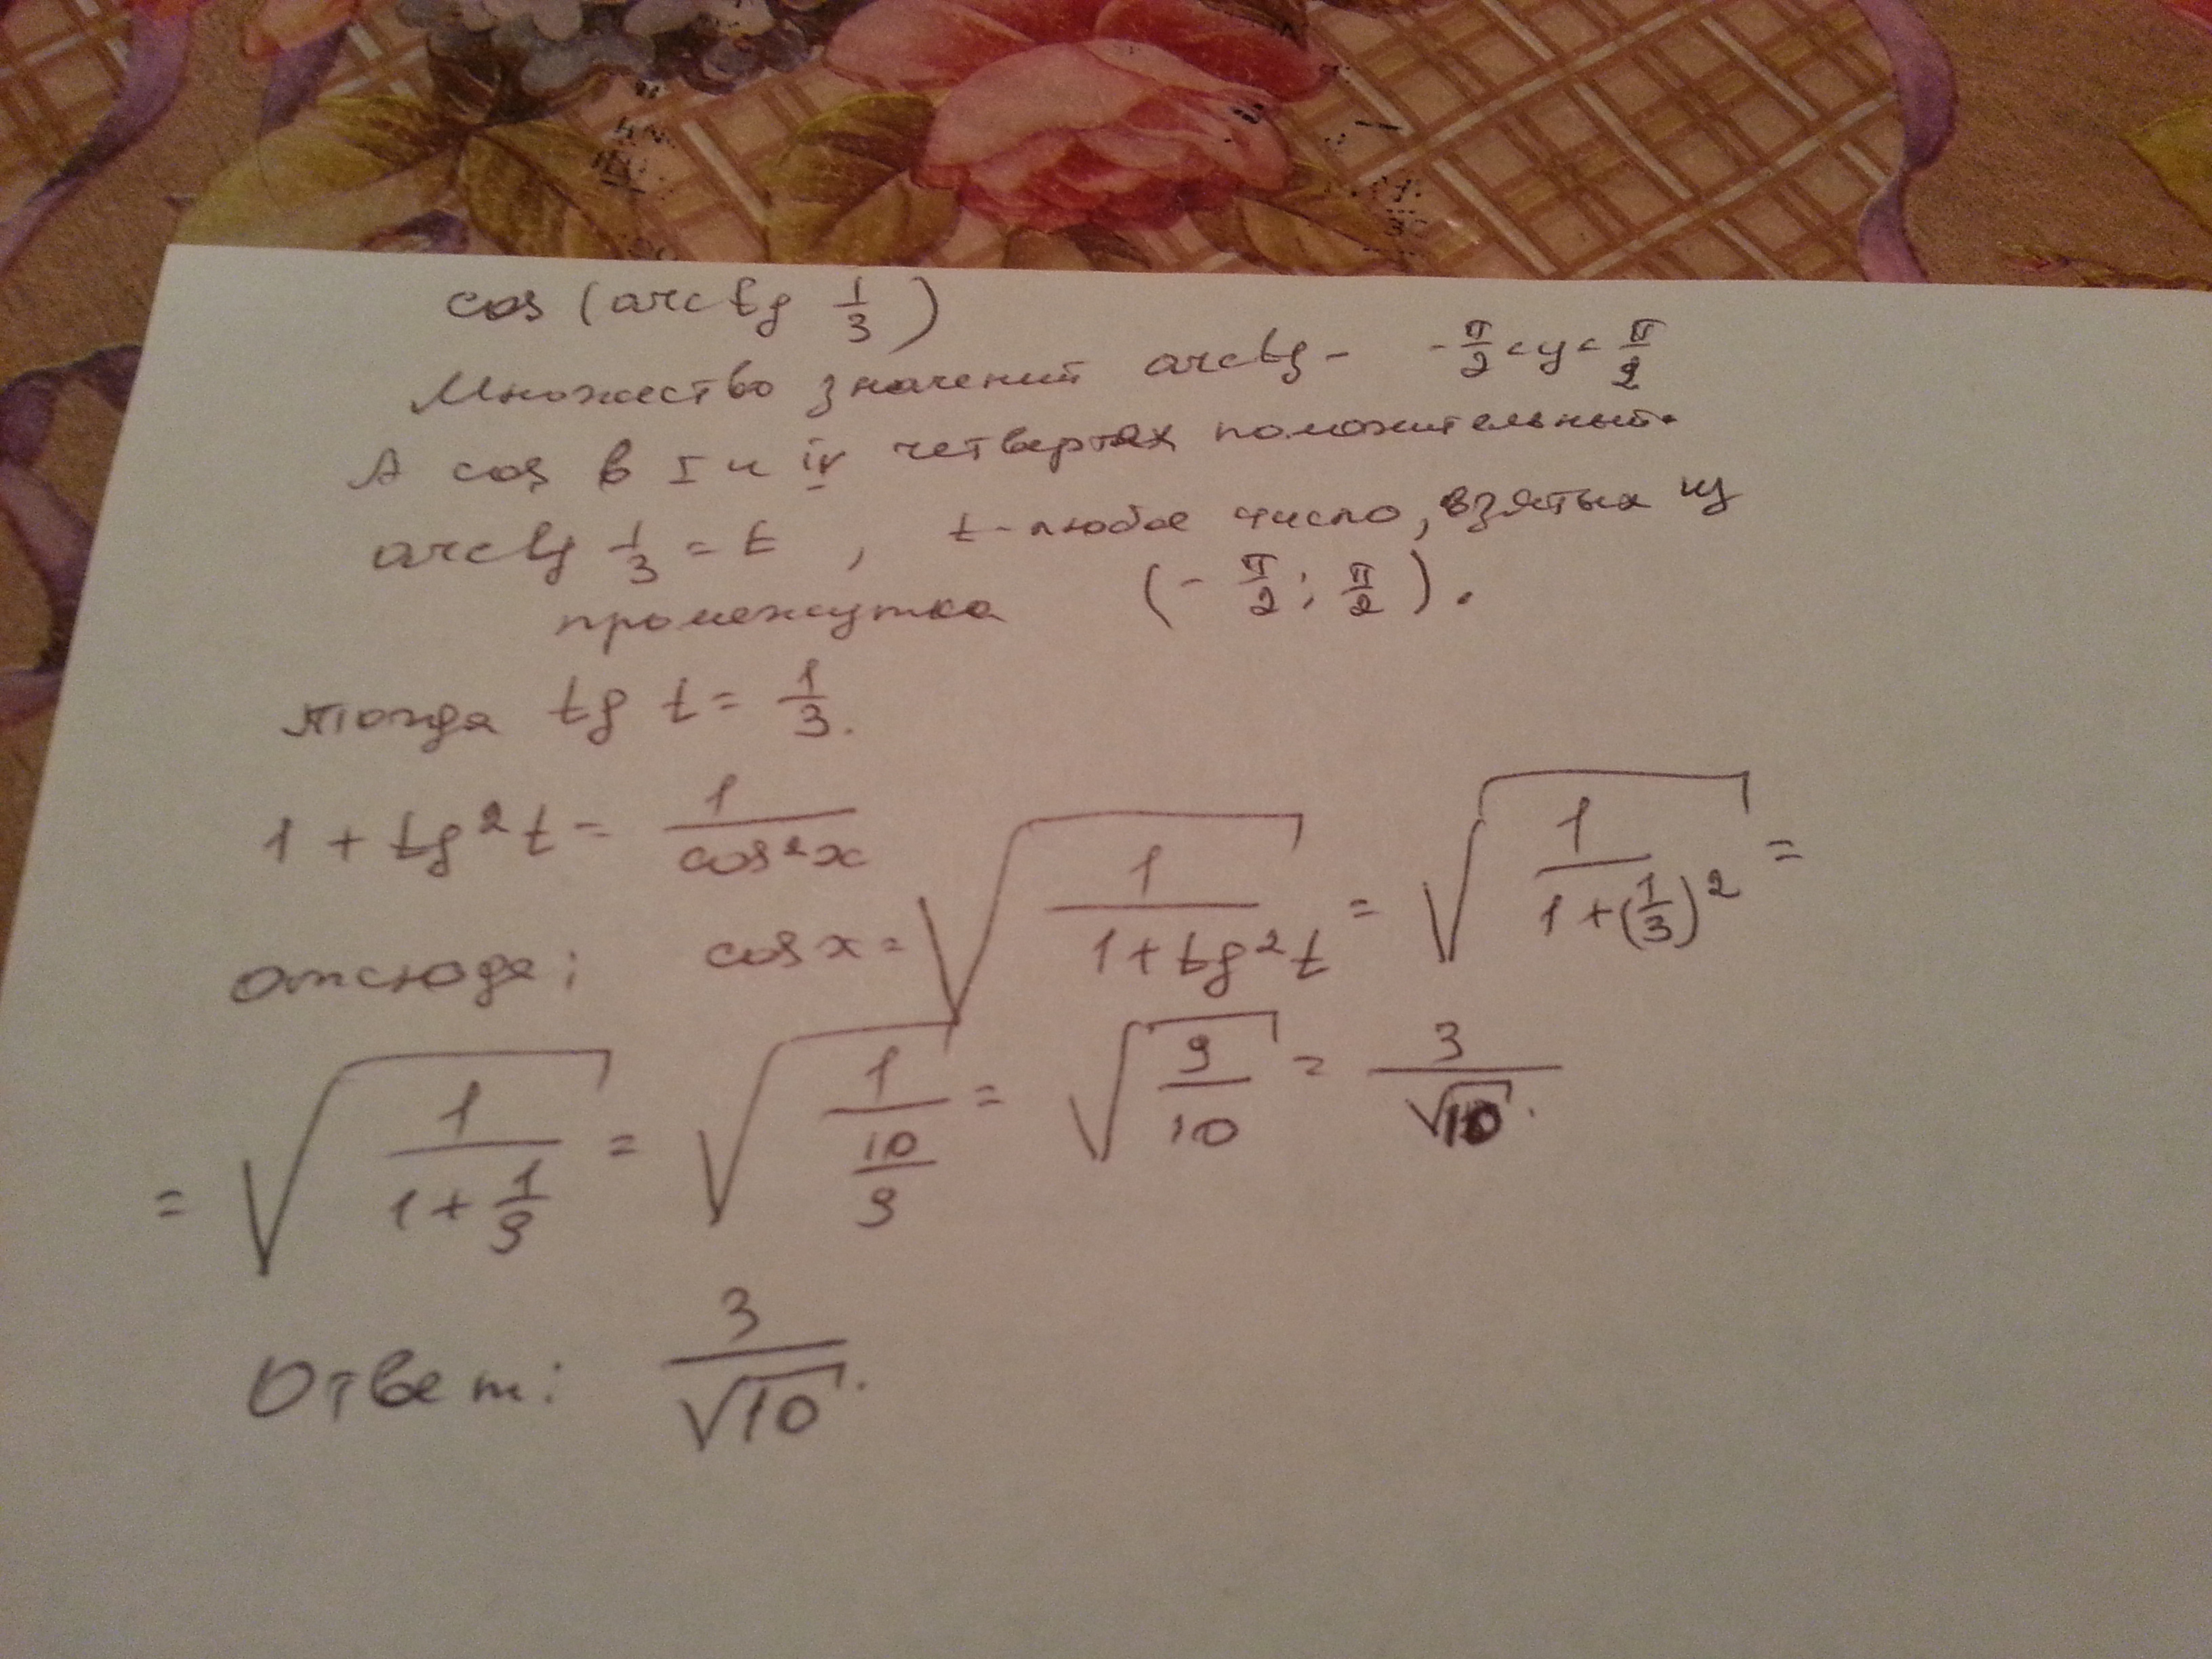 cos (arctg 1/3)
Множество значений arctg - -π/2 < y < π/2
А cos в I и IV четвертях положительный.
arctg 1/3 = t , t - любое число, взятых из
промежутка (-π/2; π/2).
Тогда tg t = 1/3.
1 + tg²t = 1/cos²x
Отсюда: cos x = √(1/(1+tg²t)) = √(1/(1+(1/3)²)) =
= √(1/(1+1/9)) = √(1/(10/9)) = √(9/10) = 3/√10.
Ответ: 3/√10.